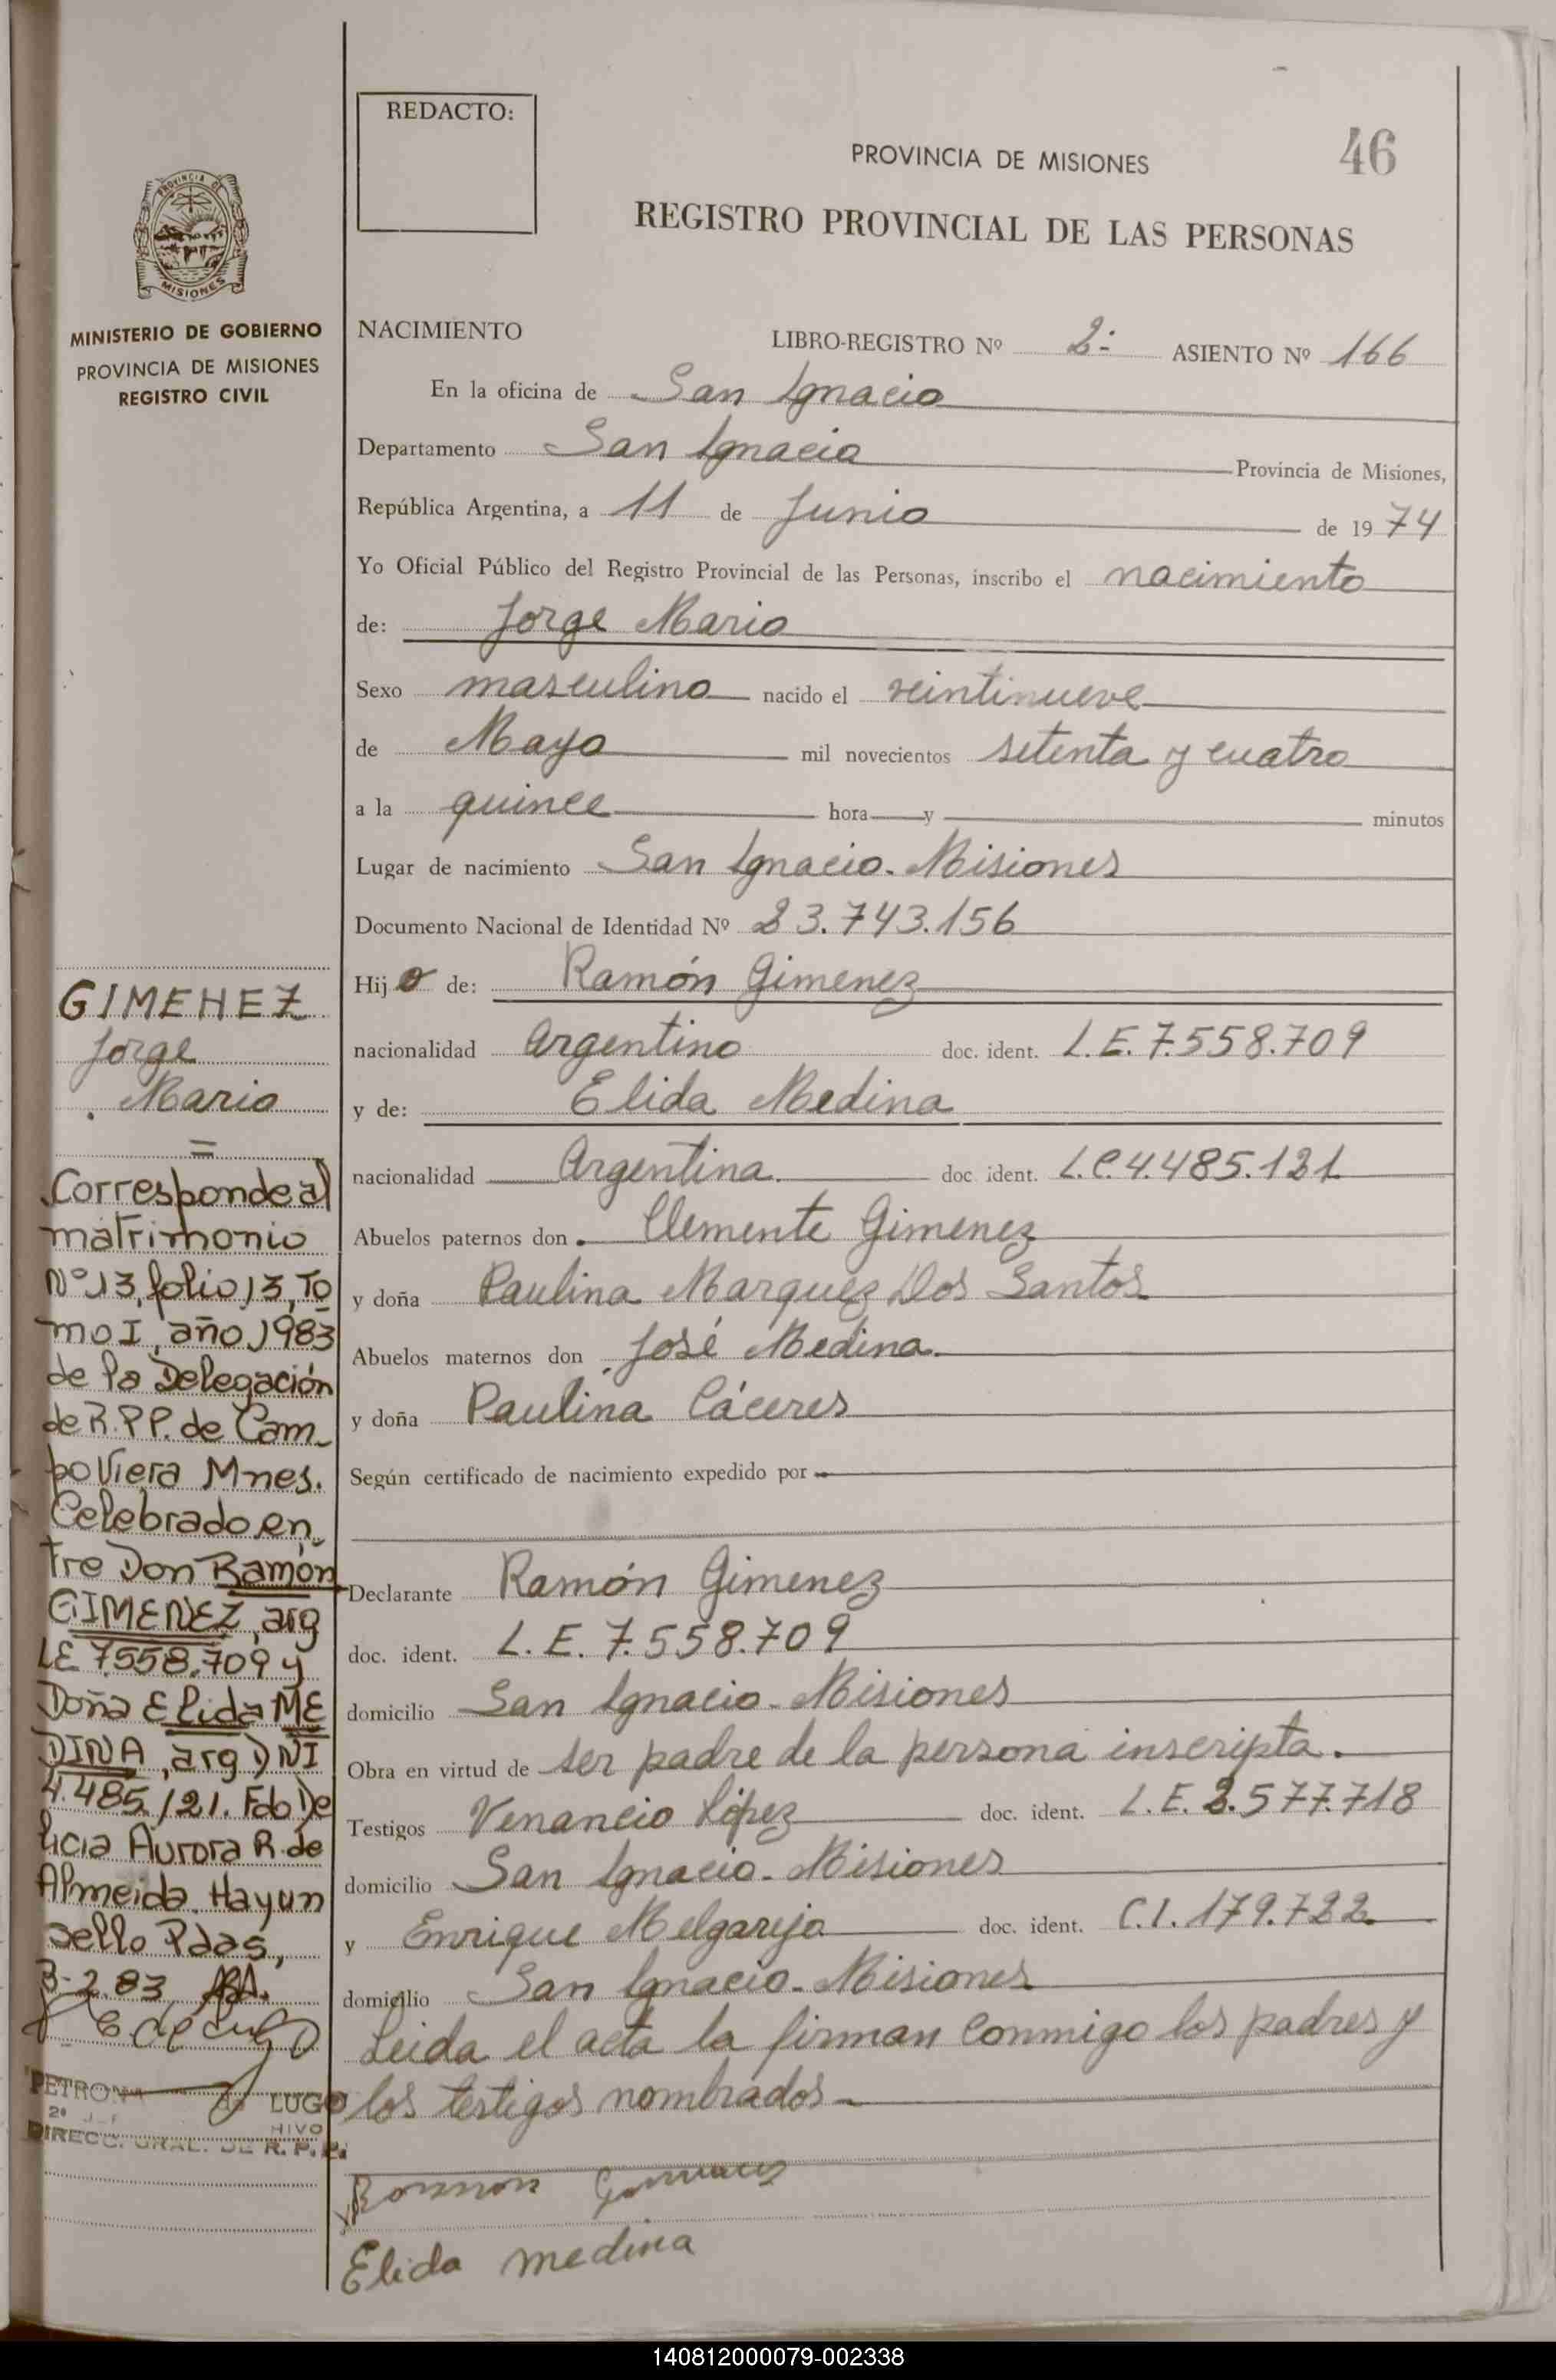 REDACTO:
PROVINCIA DE MISIONES
46
REGISTRO PROVINCIAL DE LAS PERSONAS
PROVINCIA DE
MISIONES
MINISTERIO DE GOBIERNO
PROVINCIA DE MISIONES
REGISTRO CIVIL
NACIMIENTO LIBRO-REGISTRO Nº 2- ASIENTO Nº 166
En la oficina de San Ignacio
Departamento San Ignacio Provincia de Misiones,
República Argentina, a 11 de Junio de 1974
Yo Oficial Público del Registro Provincial de las Personas, inscribo el nacimiento
de: Jorge Mario
Sexo masculino nacido el veintinueve
de Mayo mil novecientos setenta y cuatro
a la quince hora y minutos
Lugar de nacimiento San Ignacio. Misiones
Documento Nacional de Identidad Nº 23.743.156
Hijo de: Ramón Gimenez
nacionalidad Argentino doc. ident. L.E. 7.558.709
y de: Elida Medina
nacionalidad Argentina. doc. ident. L.C. 4.485.121
Abuelos paternos don Clemente Gimenez
y doña Paulina Marquez Dos Santos
Abuelos maternos don José Medina.
y doña Paulina Cáceres
Según certificado de nacimiento expedido por
Declarante Ramón Gimenez
doc. ident. L.E. 7.558.709
domicilio San Ignacio - Misiones
Obra en virtud de ser padre de la persona inscripta.
Testigos Venancio López doc. ident. L.E. 2.577.718
domicilio San Ignacio - Misiones
y Enrique Melgarejo doc. ident. C.I. 179.722
domicilio San Ignacio - Misiones
Leida el acta la firman conmigo los padres y
los testigos nombrados -
Elida medina
GIMENEZ
Jorge
Mario
=
Corresponde al
matrimonio
Nº 13, folio 13, To
mo I, año 1983
de la Delegación
de R.P.P. de Cam-
po Viera Mnes.
Celebrado en-
tre Don Ramón
GIMENEZ, arg
LE 7558.709 y
Doña Elida ME
DINA, arg DNI
4.485.121. Fdo De
licia Aurora R. de
Almeida. Hay un
sello Pdas,
3-2.83
PETRONA LUGO
DIRECC. GRAL. DE R. P. P.
140812000079-002338